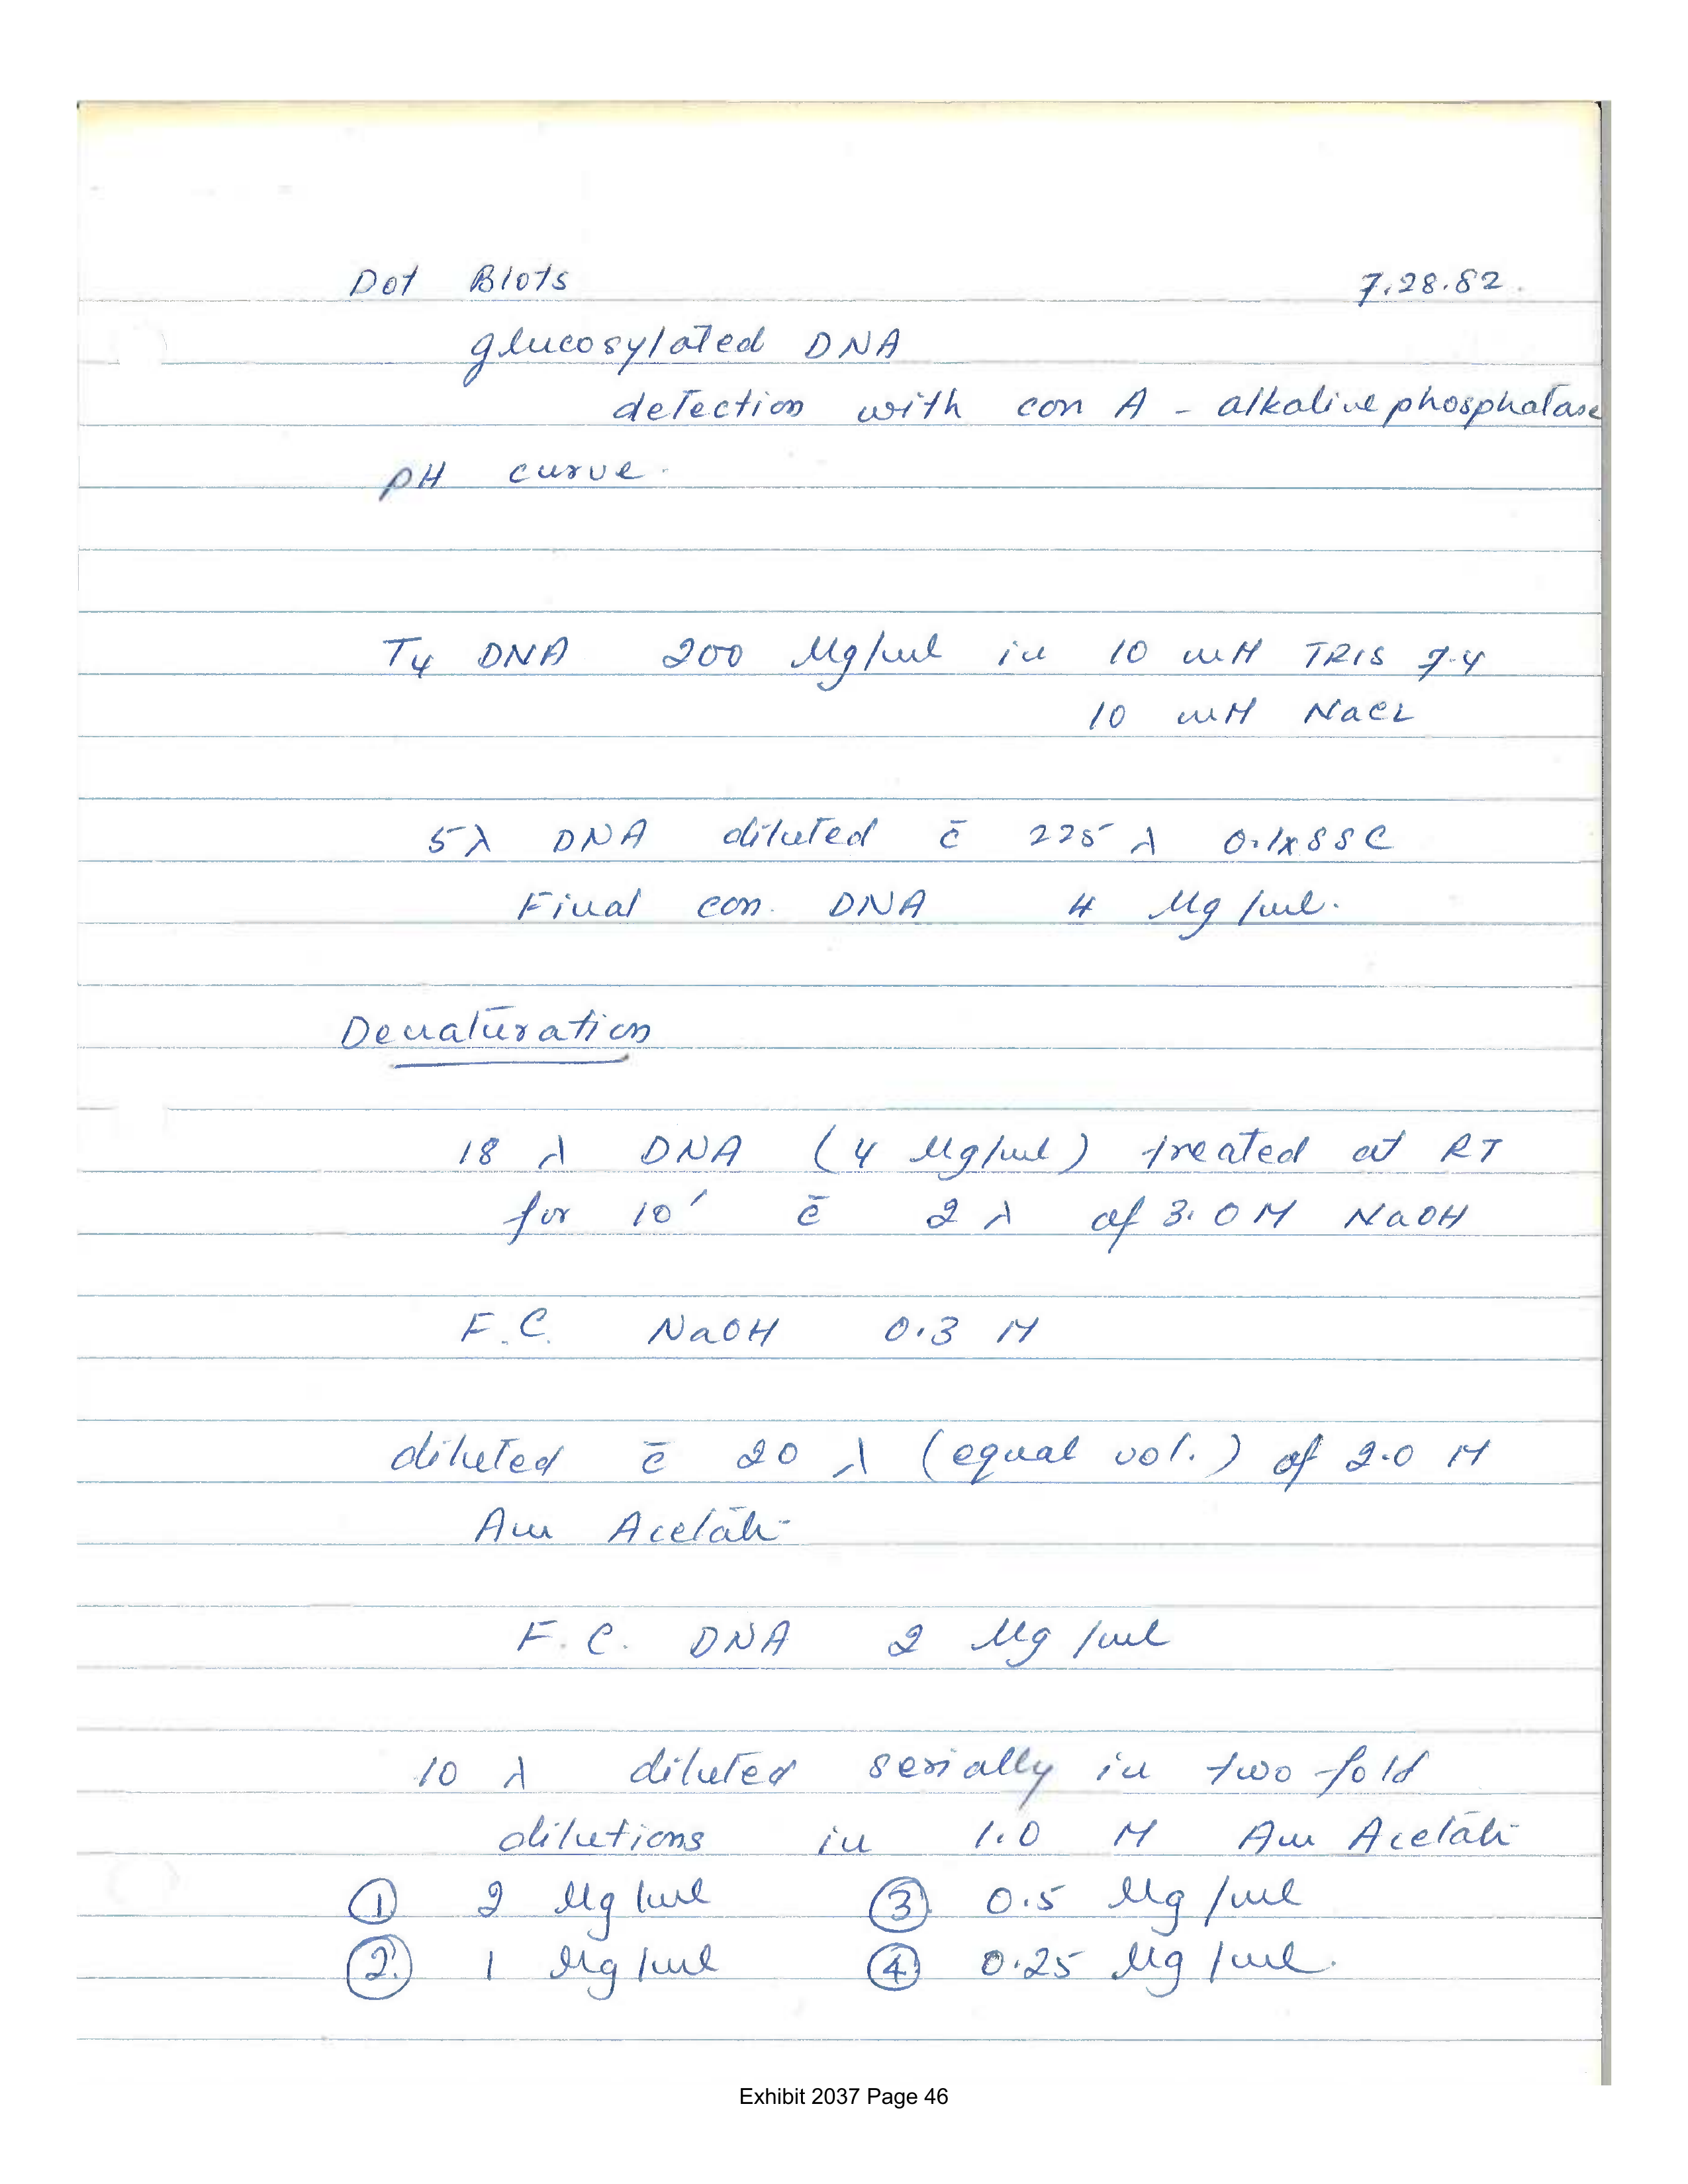 Dot Blots 7.28.82.
glucosylated DNA
detection with con A - alkaline phosphatase
pH curve.
T4 DNA 200 µg/ml in 10 mM TRIS 7.4
10 mM NaCl
5λ DNA diluted c̄ 225 λ 0.1x SSC
Final con. DNA 4 µg/ml.
Denaturation
18 λ DNA (4 µg/ml) treated at RT
for 10' c̄ 2 λ of 3.0 M NaOH
F.C. NaOH 0.3 M
diluted c̄ 20 λ (equal vol.) of 2.0 M
Am Acetate
F.C. DNA 2 µg/ml
10 λ diluted serially in two fold
dilutions in 1.0 M Am Acetate
① 2 µg/ml ③ 0.5 µg/ml
② 1 µg/ml ④ 0.25 µg/ml.
Exhibit 2037 Page 46